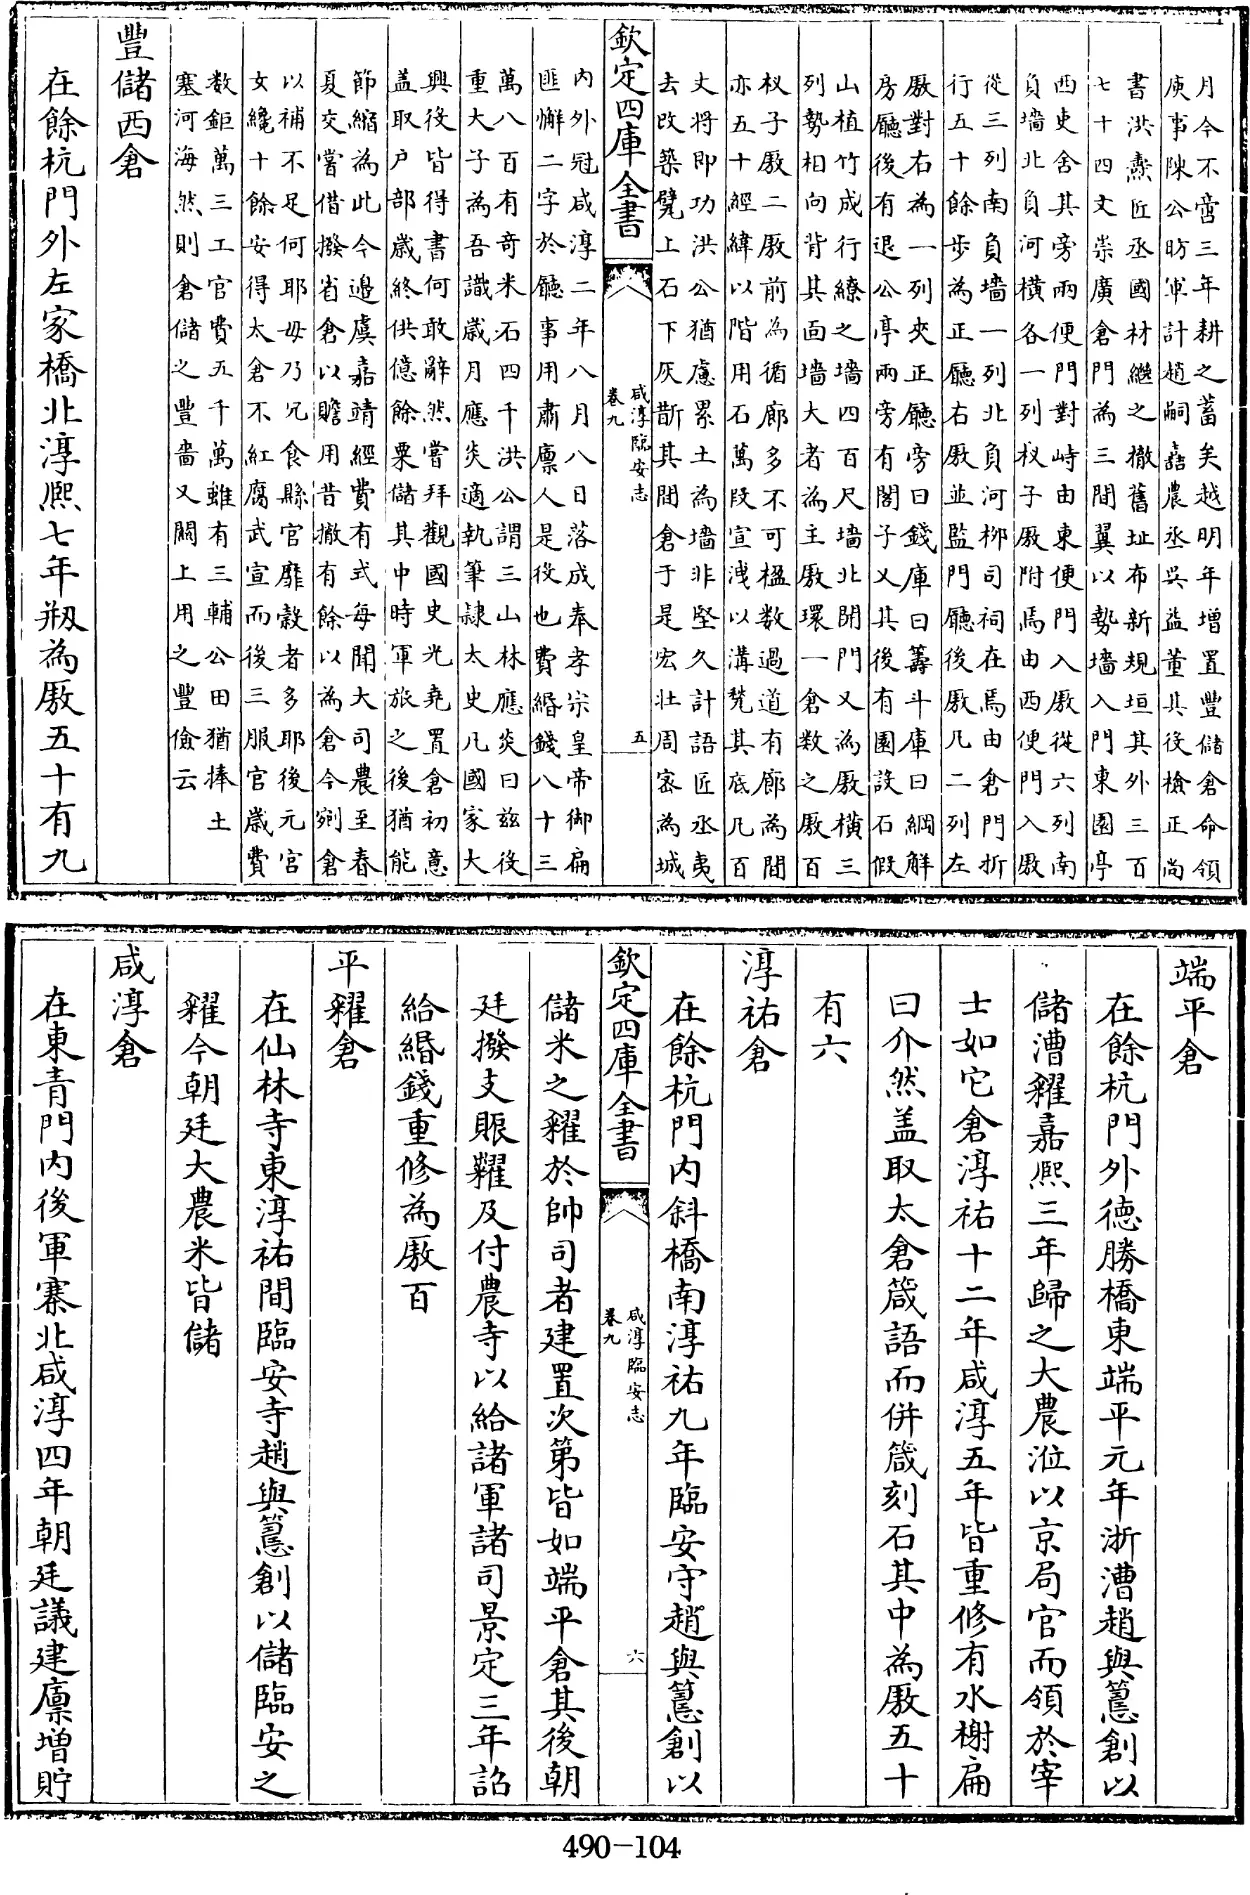 月今不啻三年耕之蓄矣越明年增置豐儲倉命領
庾事陳公昉軍計趙嗣嚞農丞吳益董其役檢正尚
書洪燾匠丞國材繼之撤舊址布新規垣其外三百
七十四丈崇廣倉門為三間翼以勢墻入門東園亭
西吏舍其旁兩便門對峙由東便門入厫從六列南
負墻北負河橫各一列杈子厫附焉由西便門入厫
從三列南負墻一列北負河栁司祠在焉由倉門折
行五十餘步為正廳右厫並監門廳後厫凡二列左
厫對右為一列夾正廳旁曰錢庫曰籌斗庫曰綱解
房廳後有退公亭兩旁有閣子又其後有園設石假
山植竹成行繚之墻四百尺墻北開門又為厫橫三
列勢相向背其面墻大者為主厫環一倉数之厫百
杈子厫二厫前為循廊多不可楹数過道有廊為間
亦五十經緯以階用石萬段宣洩以溝甃其底凡百
丈將即功洪公猶慮累土為墻非堅久計語匠丞夷
去改築甓上石下灰其間倉于是宏壯周宻為城
欽定四庫全書
咸淳臨安志
卷九
五
内外冠咸淳二年八月八日落成奉孝宗皇帝御扁
匪懈二字於廳事用肅廪人是役也費緡錢八十三
萬八百有奇米石四千洪公謂三山林應炎曰兹役
重大子為吾識歲月應炎適執筆隷太史凡國家大
興役皆得書何敢辭然嘗拜觀國史光堯置倉初意
盖取户部歲終供億餘粟儲其中時軍旅之後猶能
節縮為此今邉虞嘉靖經費有式每聞大司農至春
夏交嘗借撥省倉以贍用昔撤有餘以為倉今剜倉
以補不足何耶毋乃冗食縣官靡穀者多耶後元宫
女纔十餘安得太倉不紅腐武宣而後三服官歲費
数鉅萬三工官費五千萬雖有三輔公田猶捧土
塞河海然則倉儲之豐嗇又關上用之豐儉云
豐儲西倉
在餘杭門外左家橋北淳熙七年剏為厫五十有九
端平倉
在餘杭門外德勝橋東端平元年浙漕趙與𥲅創以
儲漕糴嘉熙三年歸之大農涖以京局官而領於宰
士如它倉淳祐十二年咸淳五年皆重修有水榭扁
曰介然盖取太倉箴語而併箴刻石其中為厫五十
有六
淳祐倉
在餘杭門内斜橋南淳祐九年臨安守趙與𥲅創以
欽定四庫全書
咸淳臨安志
卷九
六
儲米之糴於帥司者建置次第皆如端平倉其後朝
廷撥支賑糶及付農寺以給諸軍諸司景定三年詔
給緡錢重修為厫百
平糴倉
在仙林寺東淳祐間臨安寺趙與𥲅創以儲臨安之
糴今朝廷大農米皆儲
咸淳倉
在東青門内後軍寨北咸淳四年朝廷議建廪增貯
490-104